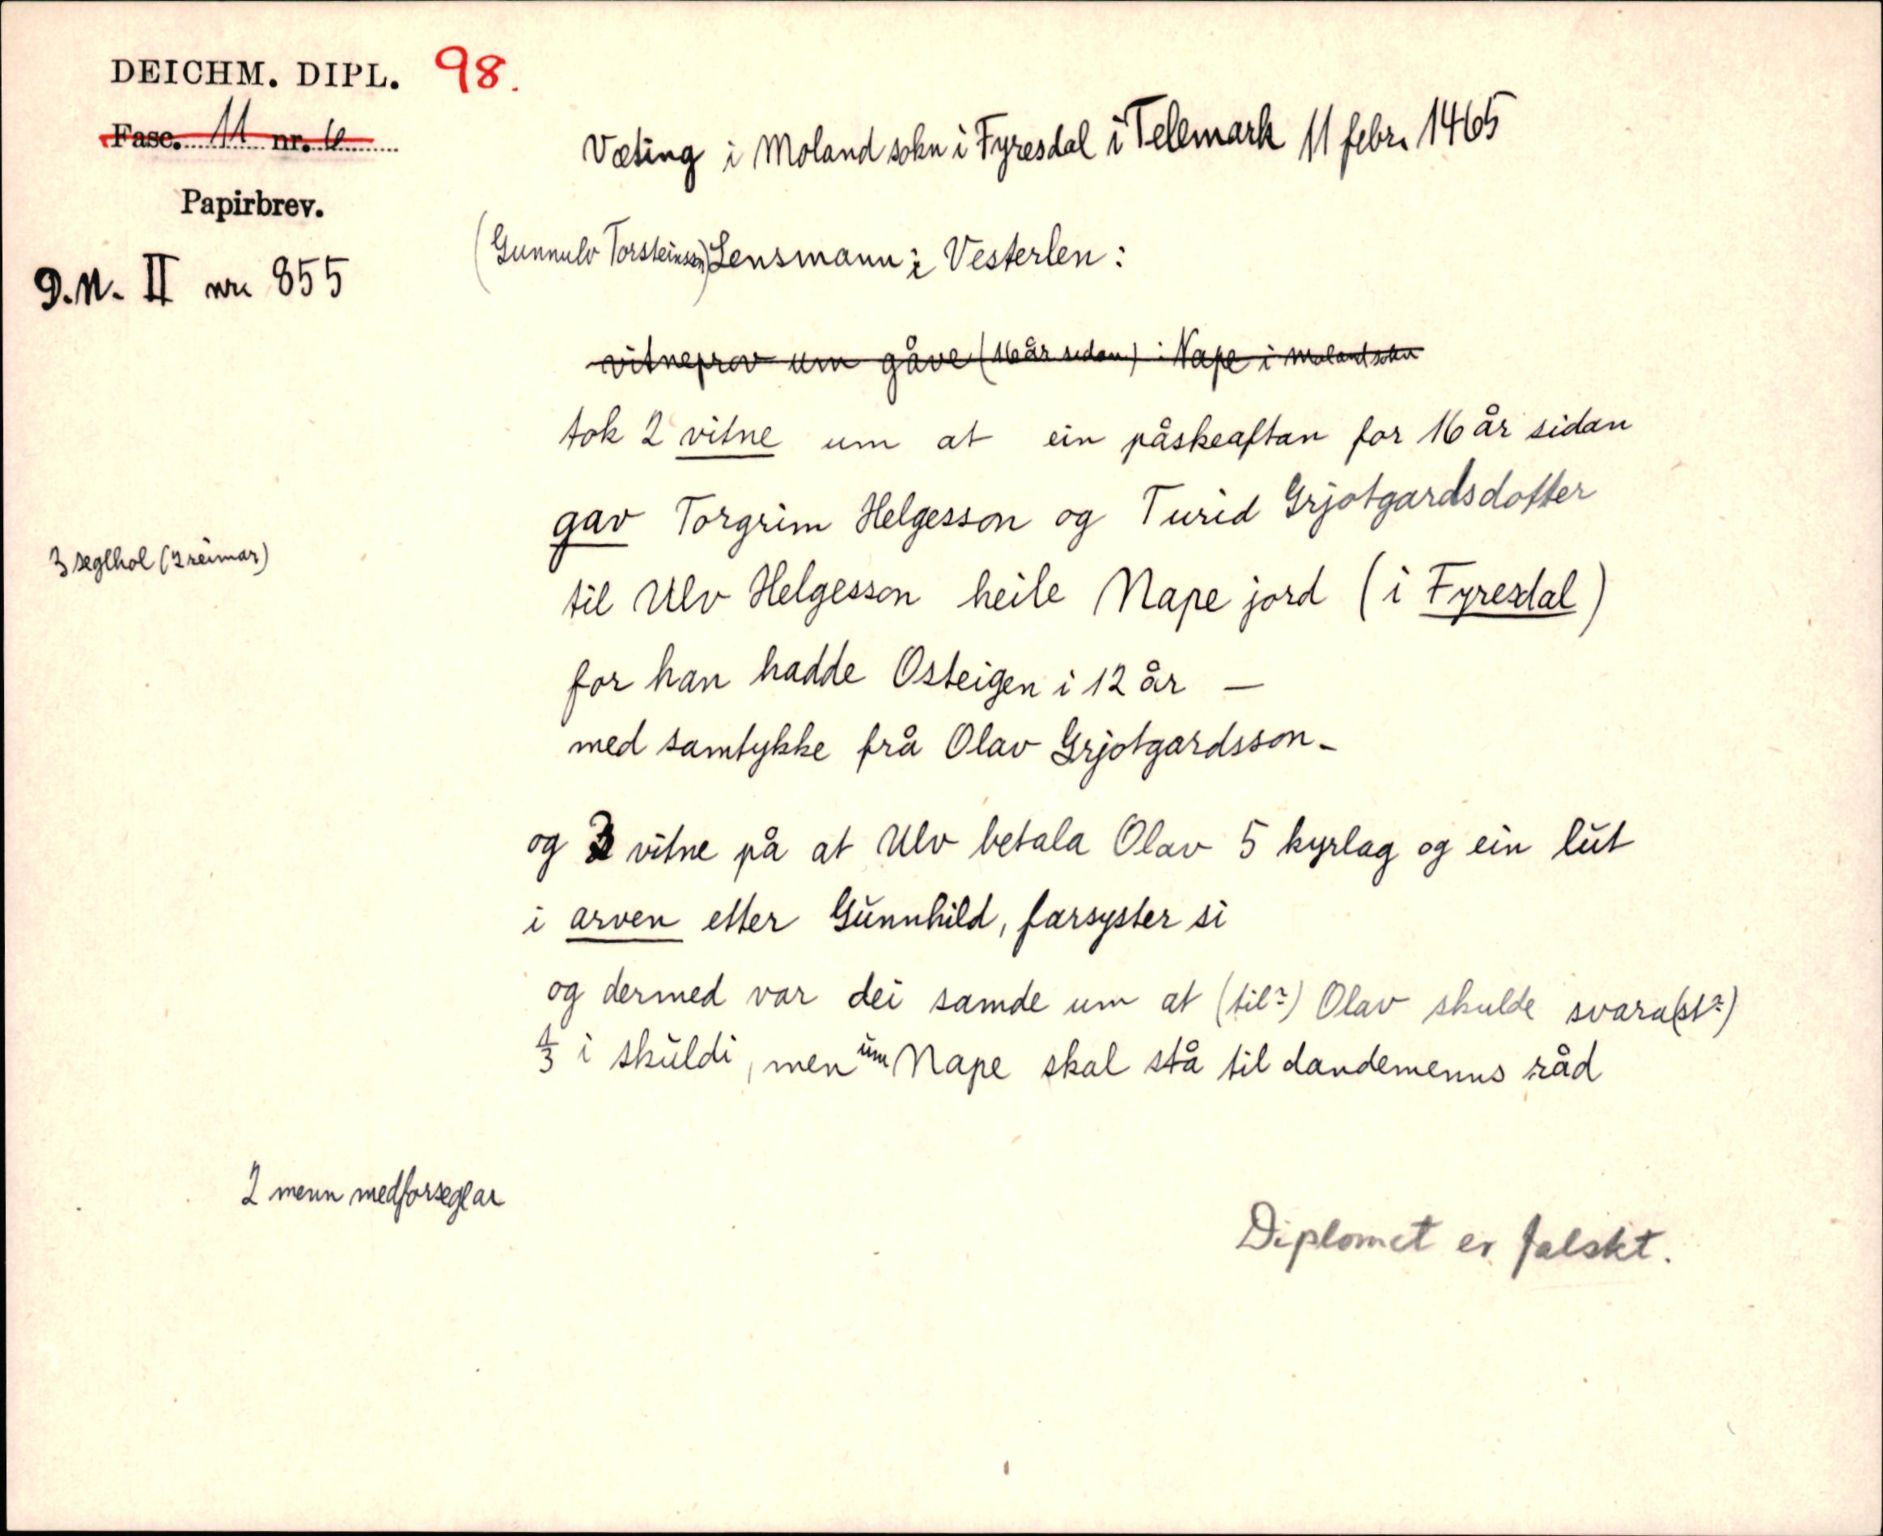 DEICHM. DIPL. 98.
Fasc. 11 nr. 6
Papirbrev.
D.N. II nr. 855
Væting i Moland sokn i Fyresdal i Telemark 11 febr. 1465
(Gunnulv Torsteinsson) Lensmann i Vesterlen:
vitneprov um gåve (16 år sidan) i Nape i Moland sokn
tok 2 vitne um at ein påskeaftan for 16 år sidan
gav Torgrim Helgesson og Turid Grjotgardsdotter
3 seglhol (2 reimar)
til Ulv Helgesson heile Nape jord (i Fyresdal)
for han hadde Osteigen i 12 år —
med samtykke frå Olav Grjotgardsson -
og 2 vitne på at Ulv betala Olav 5 kyrlag og ein lut
i arven etter Gunnhild, farsyster si
og dermed var dei samde um at (til?) Olav skulde svara (st?)
1/3 i skuldi, men um Nape skal stå til dandemenns råd
2 menn medforseglar
Diplomet er falskt.